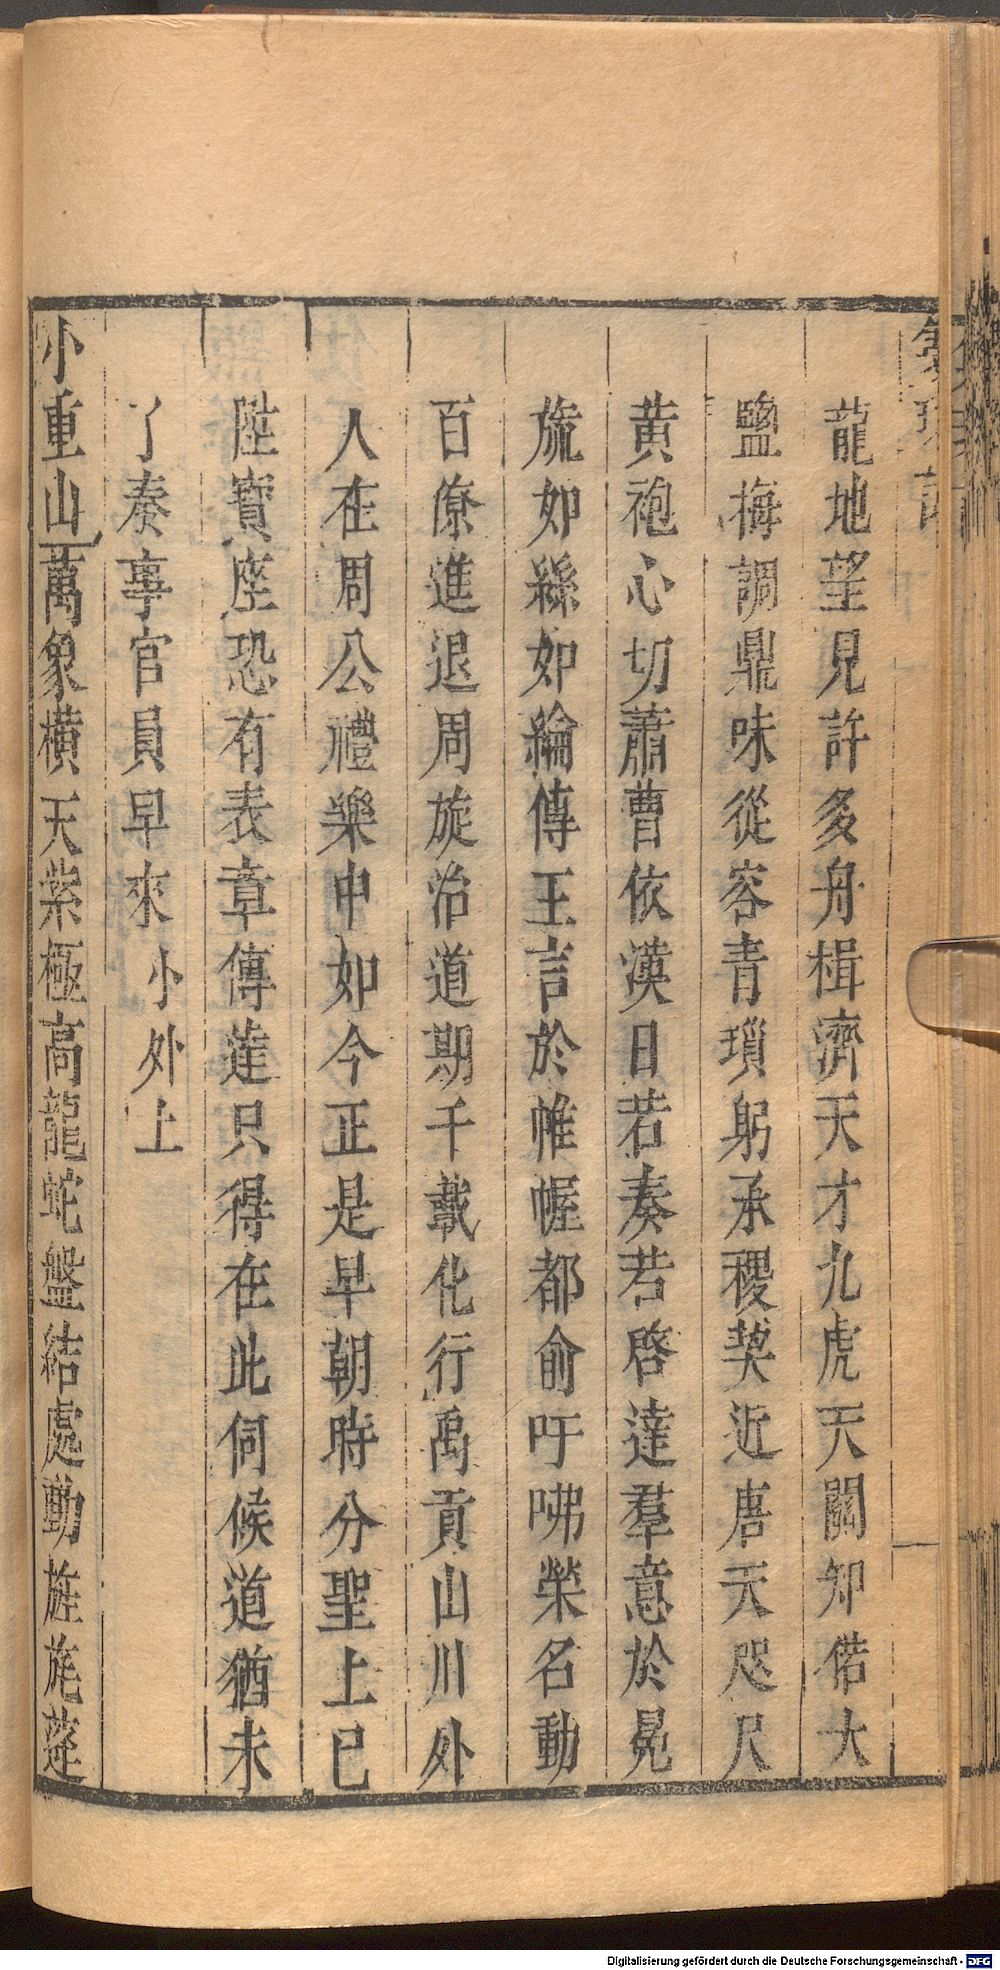 龍地望見許多舟楫濟天才九虎天關知偌大
鹽梅調鼎味從容青瑣躬承稷契近唐天咫尺
黃袍心切蕭曹依漢日若奏若啓達羣意於冕
旒如絲如綸傳王言於帷幄都俞吁咈榮名動
百僚進退周旋治道期千載化行禹貢山川外
人在周公禮樂中如今正是早朝時分聖上已
陞寶座恐有表章傳達只得在此伺候道猶未
了奏事官員早來小外上
小重山萬象橫天紫極高龍蛇盤結處動旌旄蓬
Digitalisierung gefördert durch die Deutsche Forschungsgemeinschaft - DFG